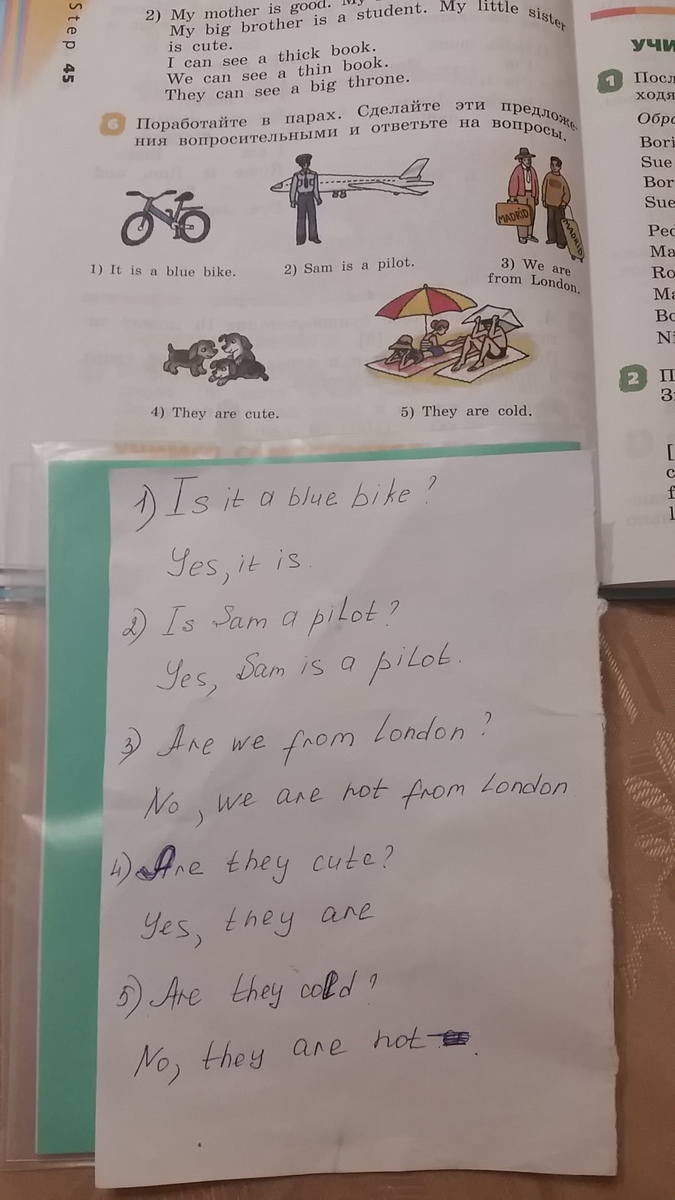 Step 45
2) My mother is good.
My big brother is a student. My little sister
is cute.
I can see a thick book.
We can see a thin book.
They can see a big throne.
6 Поработайте в парах. Сделайте эти предложе-
ния вопросительными и ответьте на вопросы.
MADRID
MADRID
1) It is a blue bike.
2) Sam is a pilot.
3) We are
from London.
4) They are cute.
5) They are cold.
1) Is it a blue bike?
Yes, it is.
2) Is Sam a pilot?
Yes, Sam is a pilot.
3) Are we from London?
No, we are not from London
4) Are they cute?
Yes, they are
5) Are they cold?
No, they are not.
УЧИ
1 Посл
ходя
Обра
Bori
Sue
Bor
Sue
Ped
Ma
Ro
Ma
Bo
Ni
2 П
З